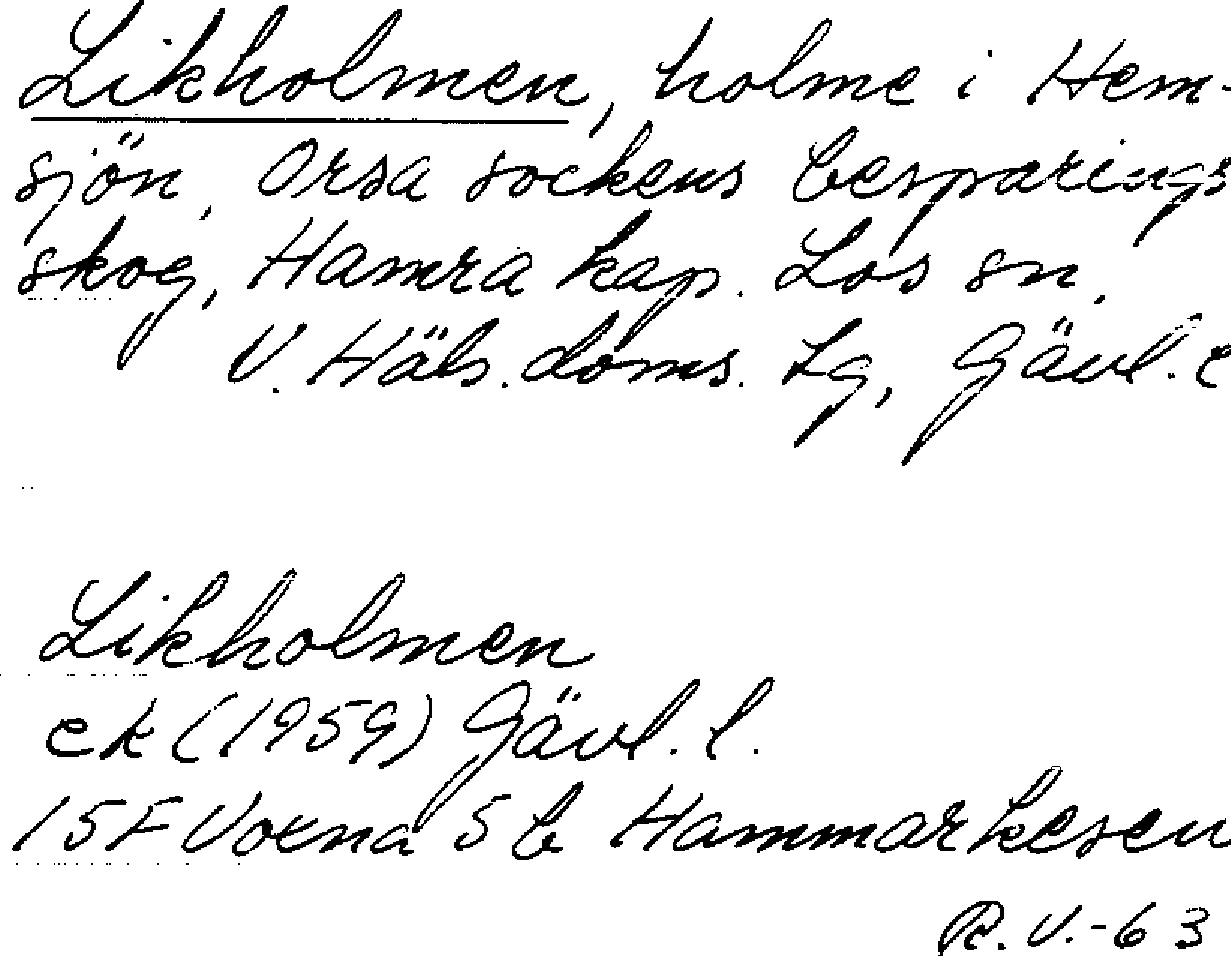 Likholmen, holme i Hem-
sjön, Orsa sockens besparings
skog, Hamra kap. Los sn,
V. Häls. doms. Lg, Gävl. l
Likholmen
ek (1959) Gävl. l.
15F Voxna 5 b Hammarkesen
R. V.-63